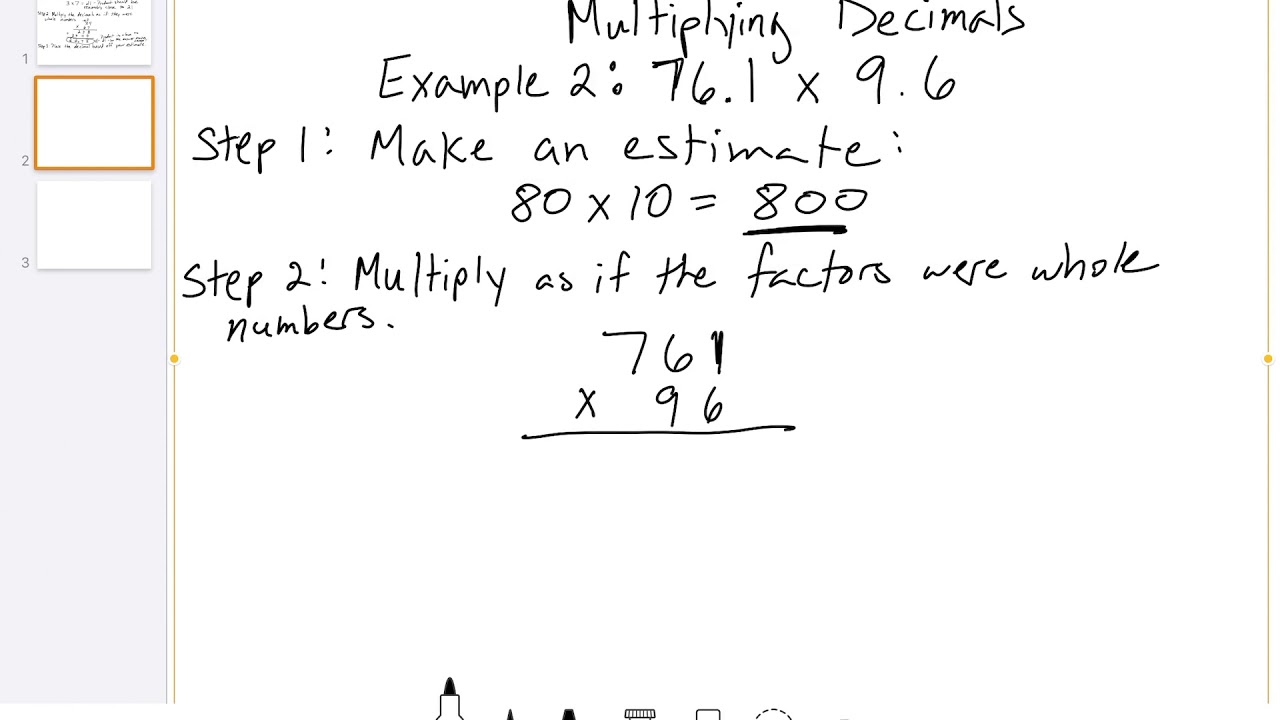 Multiplying Decimals
Example 2: 76.1 x 9.6
Step 1: Make an estimate:
80 x 10 = 800
Step 2: Multiply as if the factors were whole
numbers.
761
x 96
1
2
3